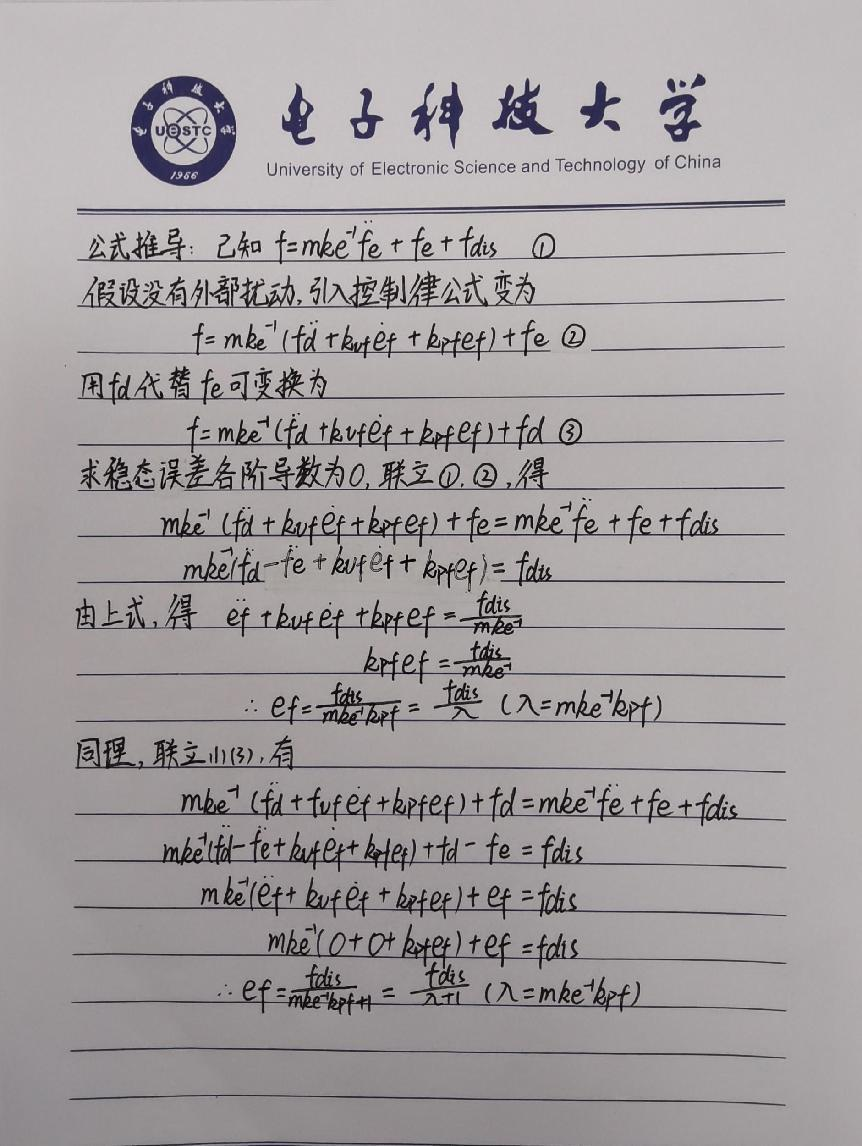 电子科技大学
UESTC
1956
电子科技大学
University of Electronic Science and Technology of China
公式推导: 已知 f=mke⁻¹f̈e + fe + fdis ①
假设没有外部扰动,引入控制律公式变为
f= mke⁻¹(f̈d + kvfėf + kpfef) + fe ②
用fd代替fe可变换为
f=mke⁻¹(f̈d +kvfėf + kpfef)+ fd ③
求稳态误差各阶导数为0,联立①,②,得
mke⁻¹(f̈d + kvfėf+kpfef) + fe = mke⁻¹f̈e + fe + fdis
mke⁻¹(f̈d-f̈e + kvfėf + kpfef) = fdis
由上式,得 ëf + kvfėf + kpfef = fdis/mke⁻¹
kpfef = fdis/mke⁻¹
∴ ef = fdis/mke⁻¹kpf = fdis/λ (λ=mke⁻¹kpf)
同理,联立(1)(3),有
mke⁻¹(f̈d + fvfėf + kpfef) + fd = mke⁻¹f̈e + fe + fdis
mke⁻¹(f̈d-f̈e + kvfėf + kpfef) + fd - fe = fdis
mke⁻¹(ëf + kvfėf + kpfef) + ef = fdis
mke⁻¹(0+0+kpfef) + ef = fdis
∴ ef = fdis/mke⁻¹kpf+1 = fdis/λ+1 (λ=mke⁻¹kpf)